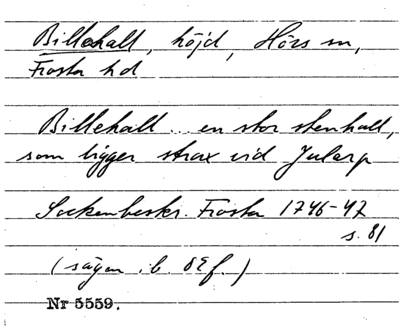 Billehall, höjd, Hörs sn,
Frosta hd
Billehall... en stor stenhall,
som ligger strax vid Jularp
Sockenbeskr. Frosta 1746-47
s. 81
(sägen, b. OEf.)
Nr 5559.